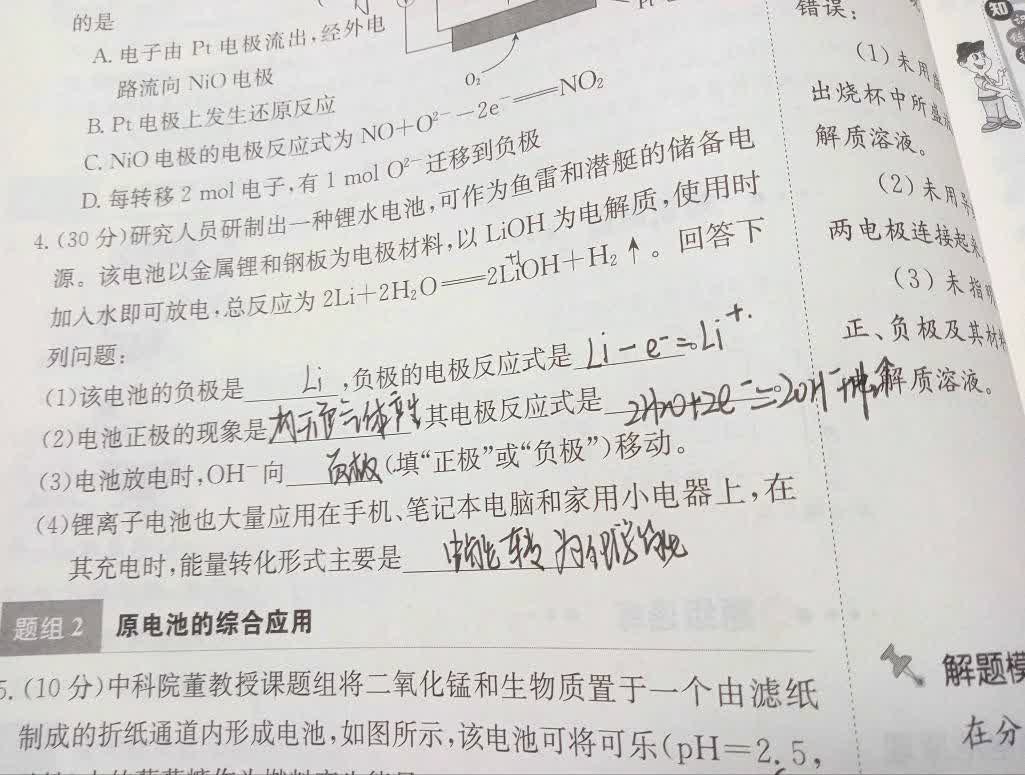 的是
A. 电子由 Pt 电极流出,经外电
路流向 NiO 电极
B. Pt 电极上发生还原反应
C. NiO 电极的电极反应式为 NO+O²⁻-2e⁻══NO₂
D. 每转移 2 mol 电子,有 1 mol O²⁻ 迁移到负极
O₂
4. (30 分)研究人员研制出一种锂水电池,可作为鱼雷和潜艇的储备电
源。该电池以金属锂和钢板为电极材料,以 LiOH 为电解质,使用时
加入水即可放电,总反应为 2Li+2H₂O══2LiOH+H₂↑。回答下
+1
列问题:
(1)该电池的负极是 Li ,负极的电极反应式是 Li-e⁻=Li⁺.
(2)电池正极的现象是 有无色气体产生 其电极反应式是 2H₂O+2e⁻=2OH⁻+H₂↑
(3)电池放电时,OH⁻向 负极 (填“正极”或“负极”)移动。
(4)锂离子电池也大量应用在手机、笔记本电脑和家用小电器上,在
其充电时,能量转化形式主要是 电能转为化学能
题组 2 原电池的综合应用
5. (10 分)中科院董教授课题组将二氧化锰和生物质置于一个由滤纸
制成的折纸通道内形成电池,如图所示,该电池可将可乐(pH=2.5,
错误:
(1)未用
出烧杯中所盛
解质溶液。
(2)未用导
两电极连接起来
(3)未指明
正、负极及其材料
解质溶液。
知
解题模
在分